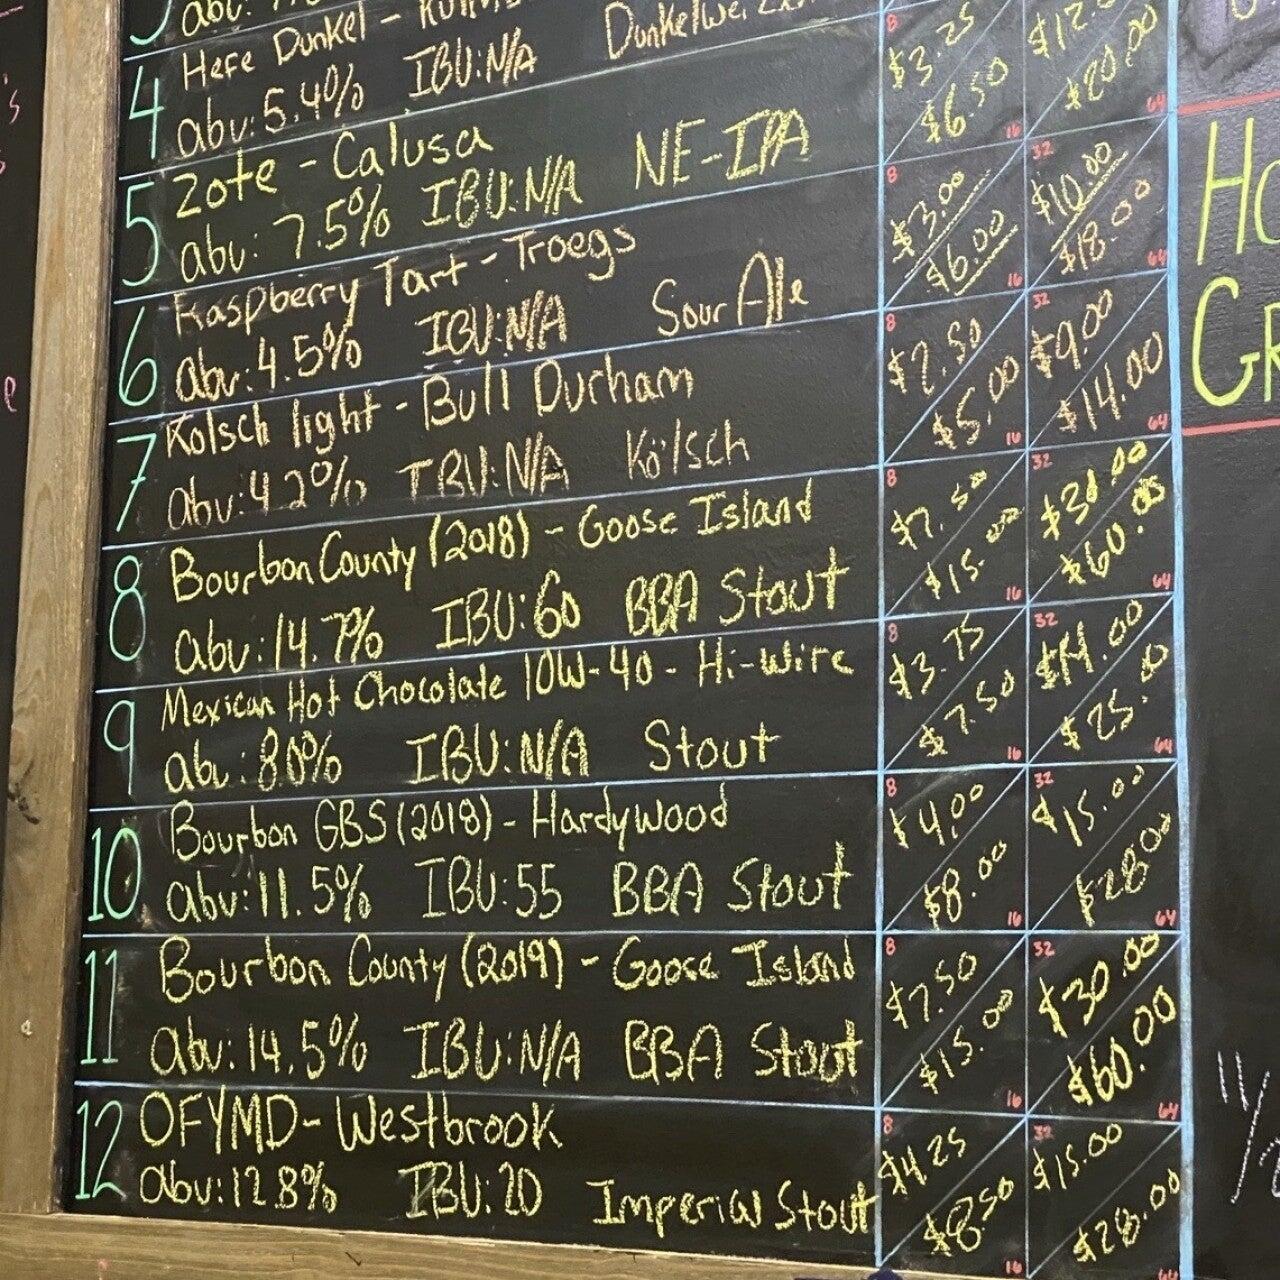 4 Hefe Dunkel -
abv: 5.4% IBU:N/A
8 $3.25 $6.50 16 $20.00 64
5 Zote - Calusa
abv: 7.5% IBU:N/A NE-IPA
8 $3.00 $6.00 16 32 $10.00 $18.00 64
6 Raspberry Tart - Troegs
abv: 4.5% IBU:N/A Sour Ale
8 $2.50 $5.00 16 32 $9.00 $14.00 64
7 Kolsch light - Bull Durham
abv: 4.2% IBU:N/A Kölsch
8 $7.50 $15.00 16 32 $30.00 $60.00 64
8 Bourbon County (2018) - Goose Island
abv: 14.7% IBU:60 BBA Stout
8 $3.75 $7.50 16 32 $14.00 $25.00 64
9 Mexican Hot Chocolate 10W-40 - Hi-Wire
abv: 8.0% IBU:N/A Stout
8 $4.00 $8.00 16 32 $15.00 $28.00 64
10 Bourbon GBS (2018) - Hardywood
abv: 11.5% IBU:55 BBA Stout
8 $7.50 $15.00 16 32 $30.00 $60.00 64
11 Bourbon County (2019) - Goose Island
abv: 14.5% IBU:N/A BBA Stout
8 $4.25 $8.50 16 32 $15.00 $28.00 64
12 OFYMD - Westbrook
abv: 12.8% IBU: 20 Imperial Stout